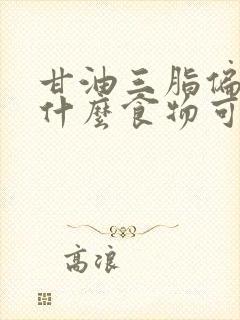 甘油三脂偏
什麼食物可
高浪